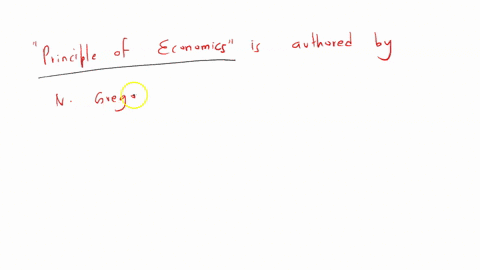 "Principle of Economics" is authored by
N. Greg